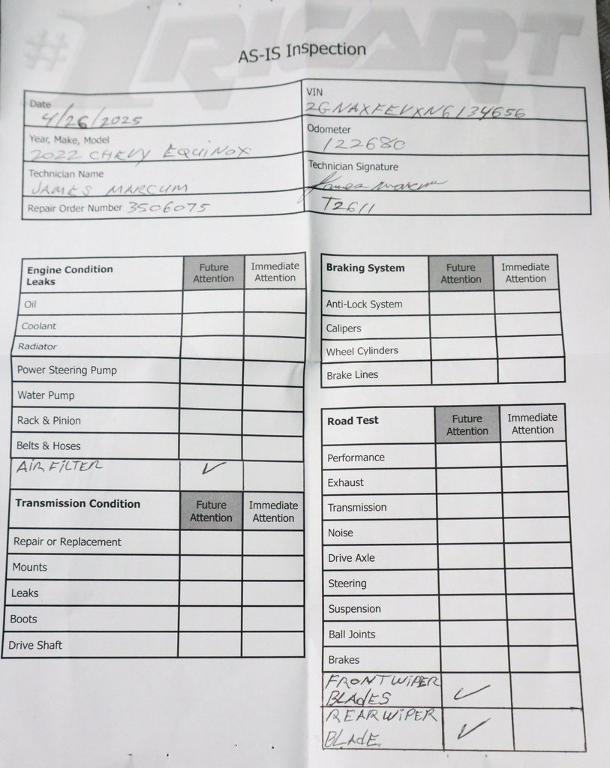 #1 RICART
AS-IS Inspection
Date
4/26/2025
VIN
2GNAXFEVXN6134656
Year, Make, Model
2022 CHEVY EQUINOX
Odometer
122680
Technician Name
JAMES MARCUM
Technician Signature
James Marcum
Repair Order Number 3506075
T2611
Engine Condition
Leaks
Future
Attention
Immediate
Attention
Oil
Coolant
Radiator
Power Steering Pump
Water Pump
Rack & Pinion
Belts & Hoses
AIR FILTER ✓
Transmission Condition
Future
Attention
Immediate
Attention
Repair or Replacement
Mounts
Leaks
Boots
Drive Shaft
Braking System
Future
Attention
Immediate
Attention
Anti-Lock System
Calipers
Wheel Cylinders
Brake Lines
Road Test
Future
Attention
Immediate
Attention
Performance
Exhaust
Transmission
Noise
Drive Axle
Steering
Suspension
Ball Joints
Brakes
FRONT WIPER
BLADES ✓
REAR WIPER
BLADE ✓